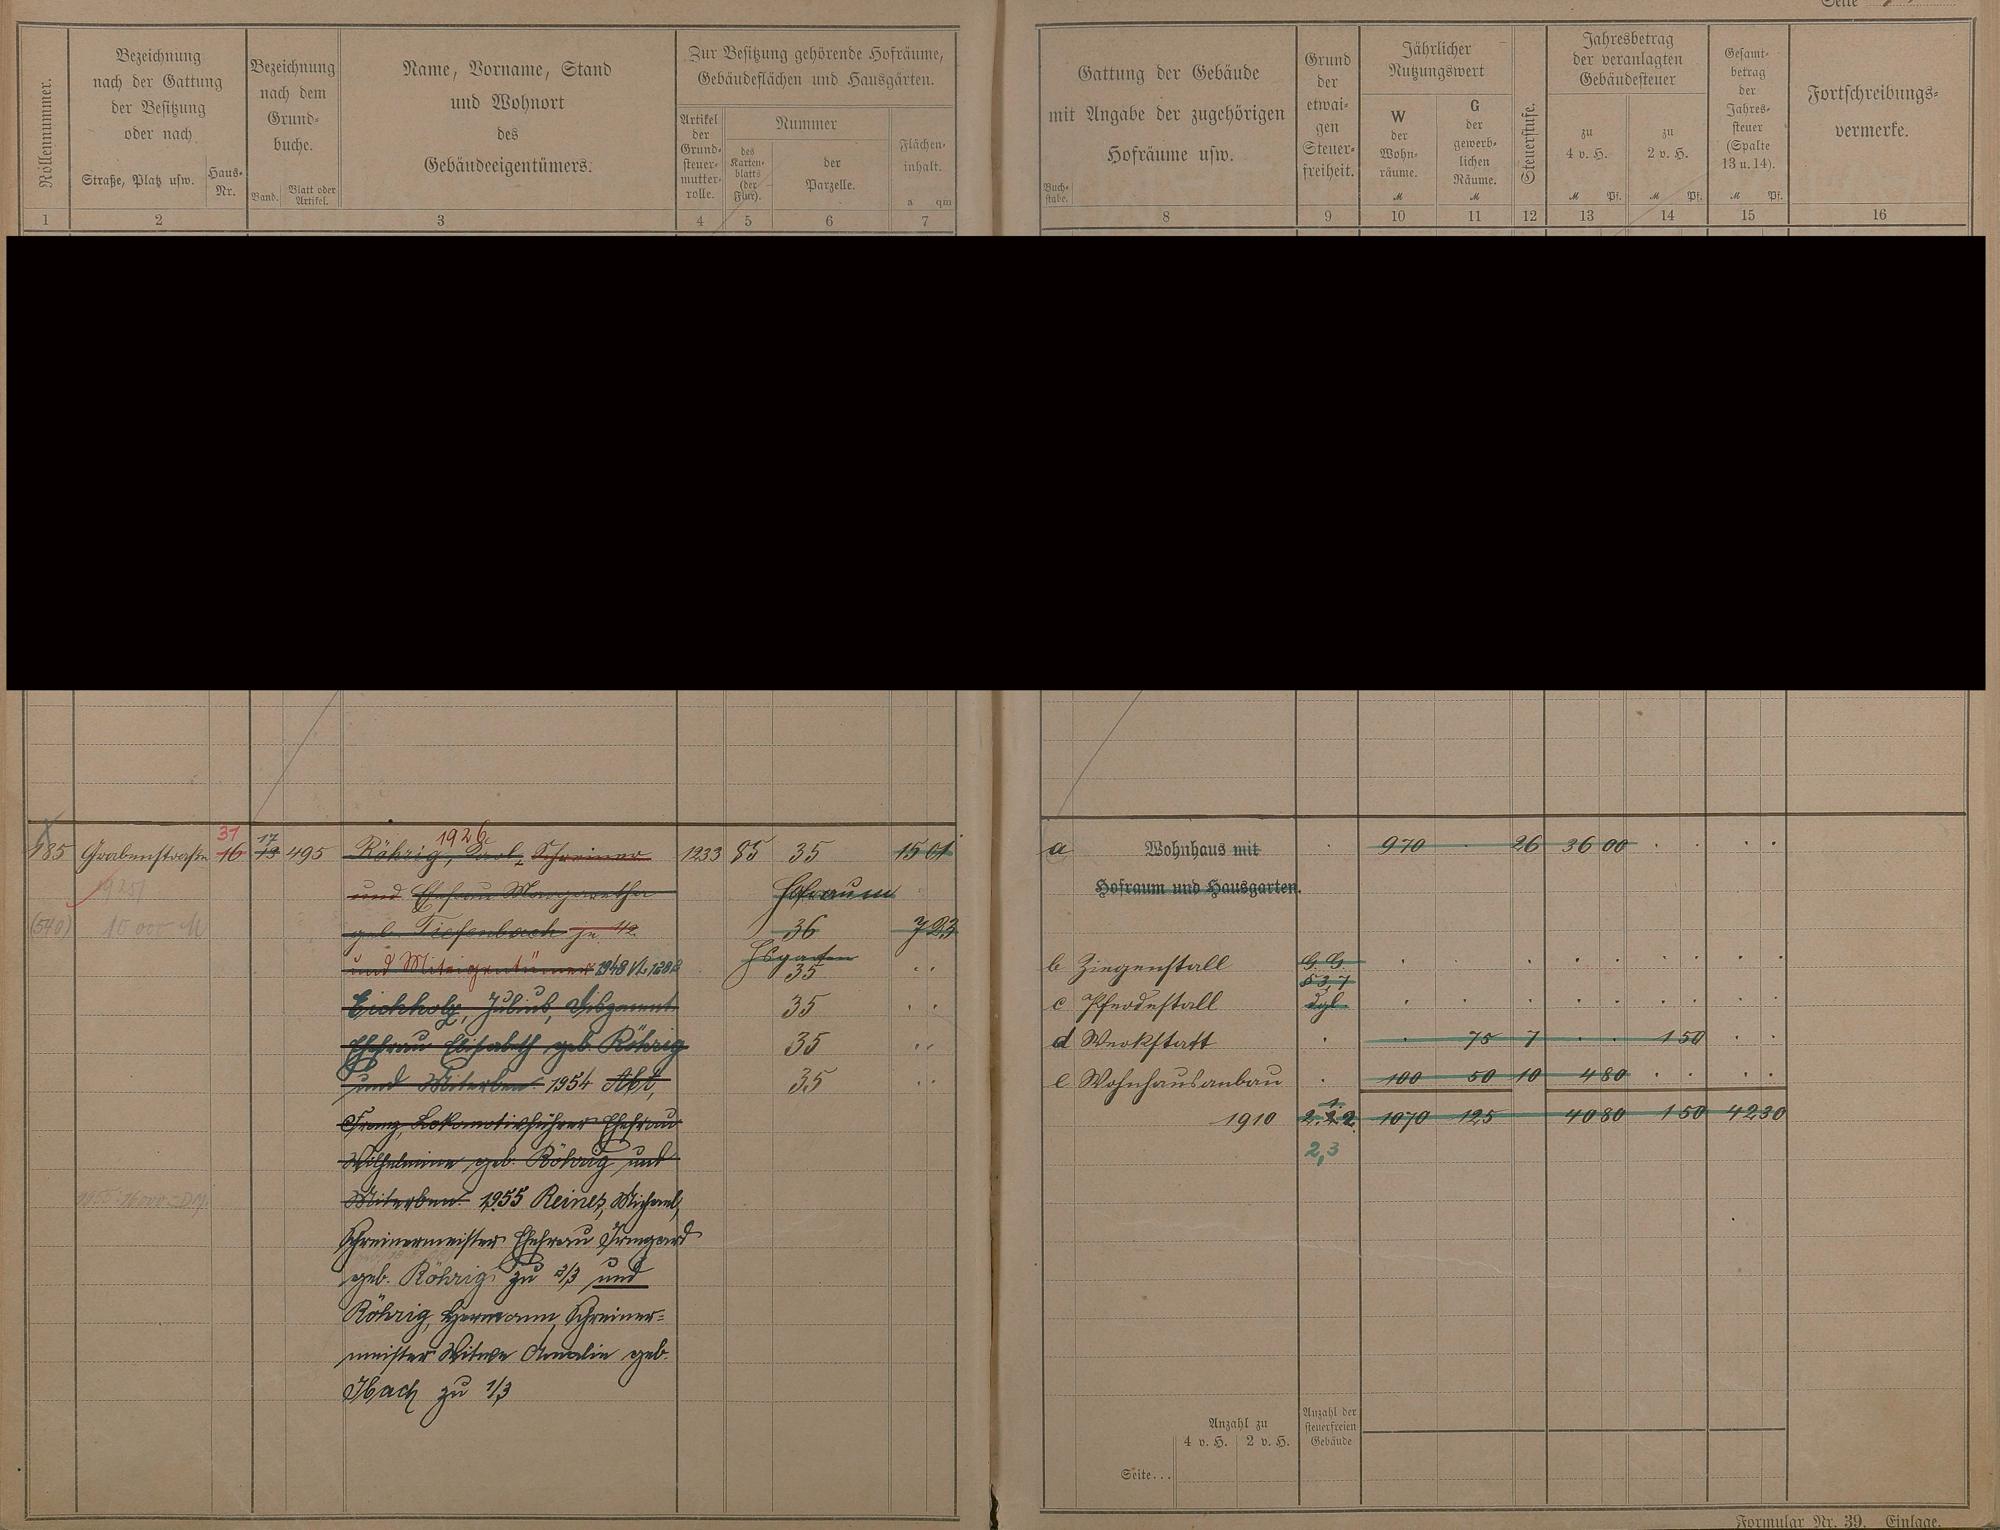 Seite
Rollennummer.
Bezeichnung
nach der Gattung
der Besitzung
oder nach
Straße, Platz usw.
Haus-
Nr.
Bezeichnung
nach dem
Grund-
buche.
Band.
Blatt oder
Artikel.
Name, Vorname, Stand
und Wohnort
des
Gebäudeeigentümers.
Zur Besitzung gehörende Hofräume,
Gebäudeflächen und Hausgärten.
Artikel
der
Grund-
steuer-
mutter-
rolle.
Nummer
des
Karten-
blatts
(der
Flur).
der
Parzelle.
Flächen-
inhalt.
a qm
1 2 3 4 5 6 7
Gattung der Gebäude
mit Angabe der zugehörigen
Hofräume usw.
Buch-
stabe.
Grund
der
etwai-
gen
Steuer-
freiheit.
Jährlicher
Nutzungswert
W
der
Wohn-
räume.
M
G
der
gewerb-
lichen
Räume.
M
Steuerstufe.
Jahresbetrag
der veranlagten
Gebäudesteuer
zu
4 v. H.
M Pf.
zu
2 v. H.
M Pf.
Gesamt-
betrag
der
Jahres-
steuer
(Spalte
13 u. 14).
M Pf.
Fortschreibungs-
vermerke.
8 9 10 11 12 13 14 15 16
31 17 1926
185 Grabenstraße 16 13 495 Röhrig, Carl, Schreiner 1233 85 35 15 01
und Ehefrau Margaretha Hofraum
(540) 10 000 M geb. Tiefenbach je 1/2 36 7 23
und Miteigentümer 1948 Hsgarten
35
Eichholz, Julius, 35
Ehefrau Elisabeth geb. Röhrig 35
und Miterben 1954 Abt, 35
Franz, Lokomotivführer Ehefrau
Wilhelmine geb. Röhrig und
Miterben 1955 Reines, Michael,
Schreinermeister Ehefrau Irmgard
geb. Röhrig zu 2/3 und
Röhrig, Hermann, Schreiner-
meister Witwe Amalie geb.
Ibach zu 1/3
a Wohnhaus mit 970 26 36 00
Hofraum und Hausgarten.
b Ziegenstall G. G.
§ 3,7
c Pferdestall dgl.
d Werkstatt 75 7 1 50
e Wohnhausanbau 100 50 10 4 80
1910 1070 125 40 80 1 50 42 30
2,3
Anzahl zu
4 v. H. 2 v. H.
Anzahl der
steuerfreien
Gebäude
Seite...
Formular Nr. 39. Einlage.